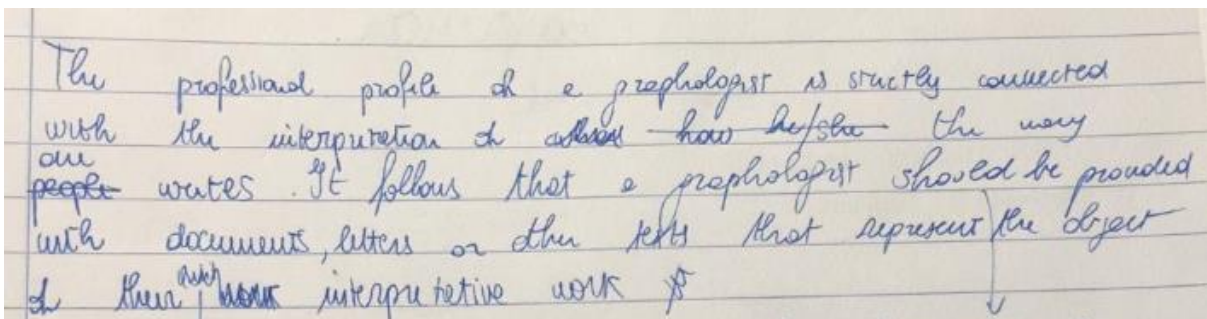 The professional profile of a graphologist is strictly connected
with the interpretation of how he/she the way
one
people writes. It follows that a graphologist should be provided
with documents, letters or other texts that represent the object
of their work interpretative work